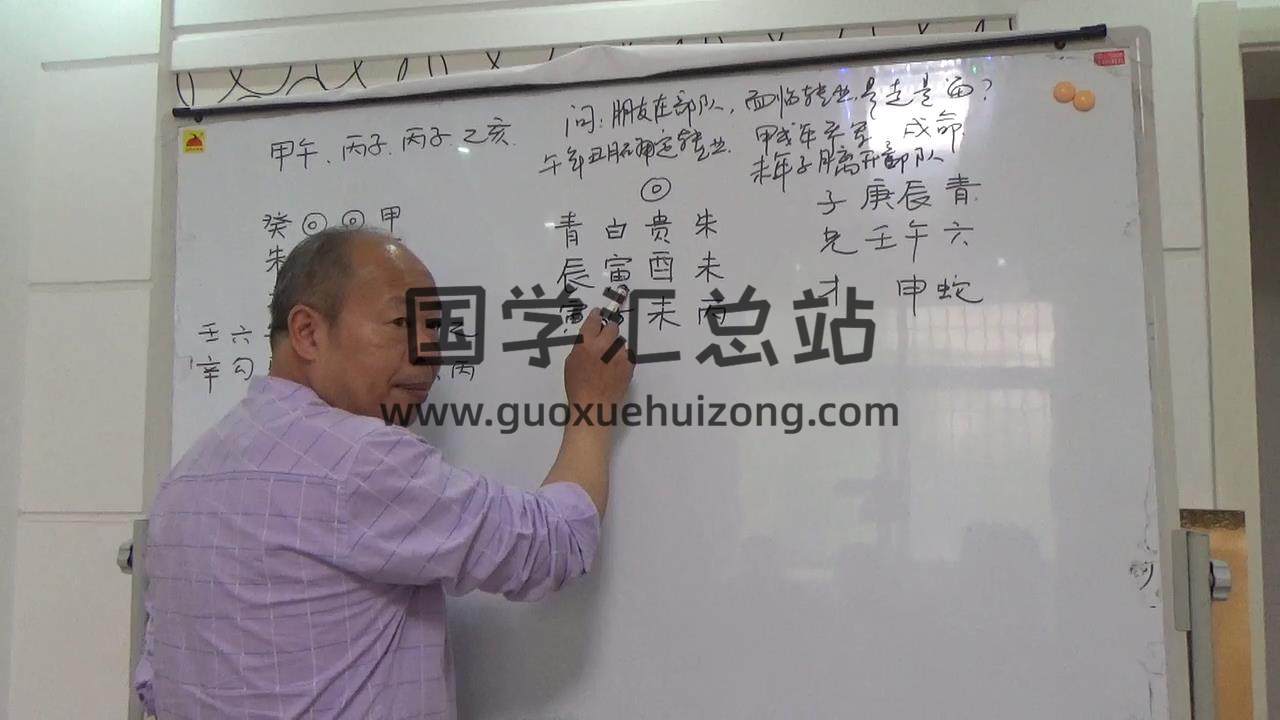 问:朋友在部队,面临转业,是走是留?
甲午、丙子、丙子、乙亥.
午年丑月确定转业.
甲戌年 戌命
未年子月离开部队
癸 ◎ ◎ 甲
朱
壬 六
辛 勾 丙
◎
青 白 贵 朱
辰 寅 酉 未
寅 未 丙
子 庚 辰 青
兄 壬 午 六
才 申 蛇
国学汇总站
www.guoxuehuizong.com